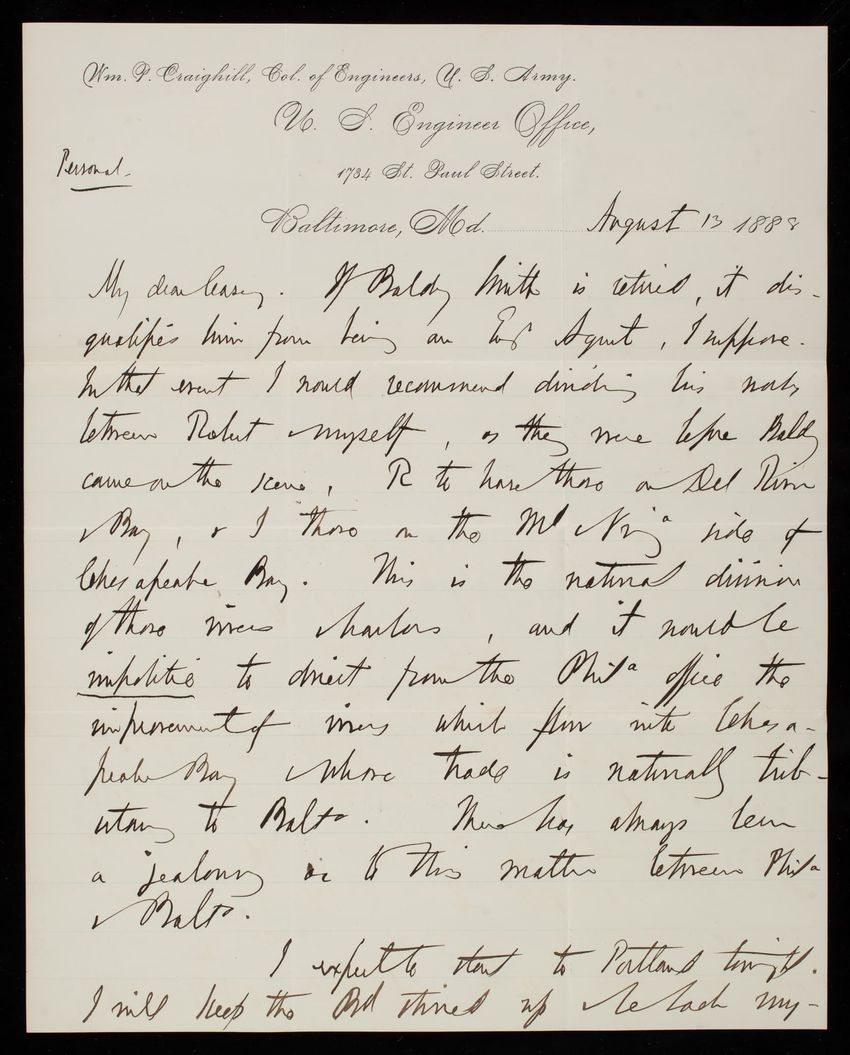 Wm. P. Craighill, Col. of Engineers, U. S. Army.
U. S. Engineer Office,
Personal.
1734 St. Paul Street.
Baltimore, Md. August 13 1888
My dear Casey. If Baldy Smith is retired, it dis-
qualifies him from being an Eng'r Agent, I suppose.
In that event I would recommend dividing his works
between Robert & myself, as they were before Baldy
came on the scene, R to have those on Del River
& Bay, & I those on the Md & Virg'a side of
Chesapeake Bay. This is the natural division
of those rivers & harbors, and it would be
impolitic to direct from the Phil'a office the
improvement of rivers which flow into Chesa-
peake Bay & whose trade is naturally trib-
utary to Balto. There has always been
a jealousy as to this matter between Phil'a
& Balto.
I expect to start to Portland tonight.
I will keep the Bd stirred up & be back my-